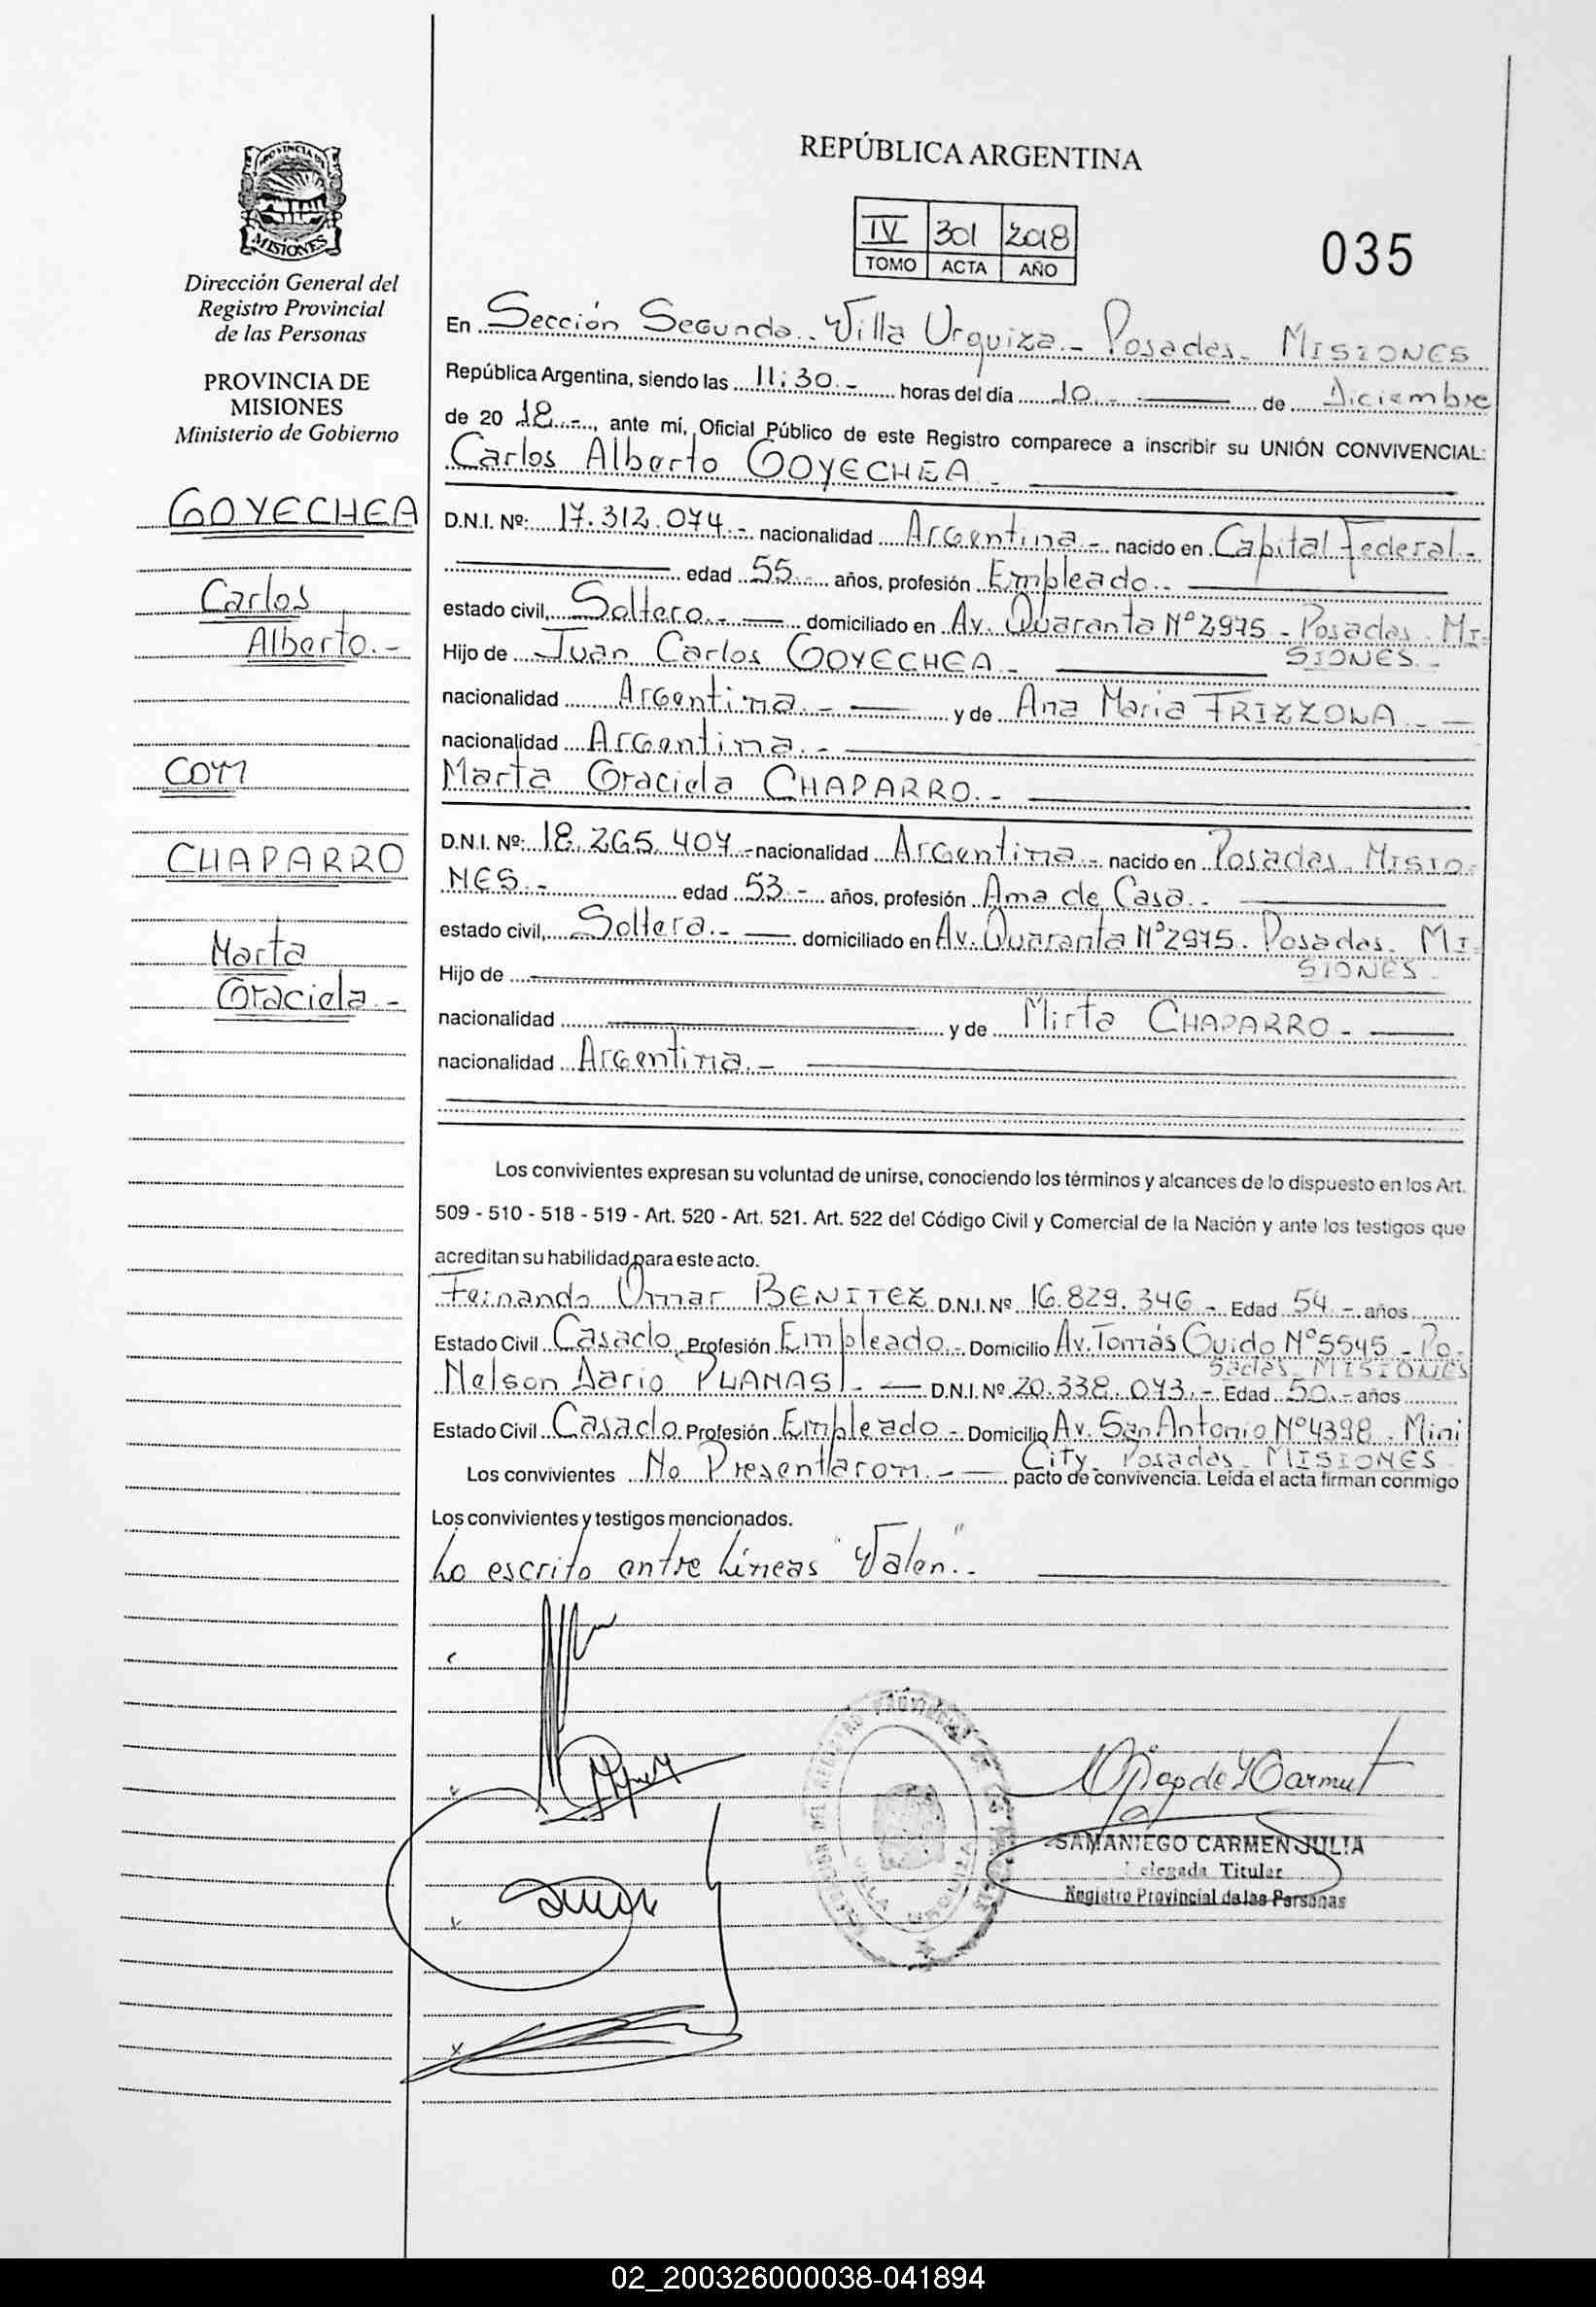 REPÚBLICA ARGENTINA
IV 301 2018
TOMO ACTA AÑO
035
PROVINCIA DE
MISIONES
Dirección General del
Registro Provincial
de las Personas
PROVINCIA DE
MISIONES
Ministerio de Gobierno
GOYECHEA
Carlos
Alberto.-
CON
CHAPARRO
Marta
Graciela.-
En Sección Segunda.. Villa Urquiza.- Posadas- MISIONES
República Argentina, siendo las 11:30.- horas del día 10.- de Diciembre
de 20 18.-, ante mí, Oficial Público de este Registro comparece a inscribir su UNIÓN CONVIVENCIAL:
Carlos Alberto GOYECHEA.-
D.N.I. Nº: 17.312.074.- nacionalidad Argentina.- nacido en Capital Federal.-
edad 55.- años, profesión Empleado.-
estado civil, Soltero.- domiciliado en Av. Quaranta Nº2975 - Posadas - MI-
SIONES.-
Hijo de Juan Carlos GOYECHEA.-
nacionalidad Argentina.- y de Ana Maria FRIZZONA.-
nacionalidad Argentina.-
Marta Graciela CHAPARRO.-
D.N.I. Nº: 18.265.407.- nacionalidad Argentina.- nacido en Posadas- MISIO-
NES.- edad 53.- años, profesión Ama de Casa.-
estado civil, Soltera.- domiciliado en Av. Quaranta Nº2975. Posadas. MI-
SIONES-
Hijo de
nacionalidad y de Mirta CHAPARRO.-
nacionalidad Argentina.-
Los convivientes expresan su voluntad de unirse, conociendo los términos y alcances de lo dispuesto en los Art.
509 - 510 - 518 - 519 - Art. 520 - Art. 521. Art. 522 del Código Civil y Comercial de la Nación y ante los testigos que
acreditan su habilidad para este acto.
Fernando Omar BENITEZ D.N.I. Nº 16.829.346.- Edad 54.- años
Estado Civil Casado Profesión Empleado.- Domicilio Av. Tomás Guido Nº5545 - Po-
sadas- MISIONES
Nelson Dario PLANAS.- D.N.I. Nº 20.338.043.- Edad 50.- años
Estado Civil Casado. Profesión Empleado.- Domicilio Av. San Antonio Nº4398 - Mini
City- Posadas- MISIONES-
Los convivientes No Presentaron.- pacto de convivencia. Leída el acta firman conmigo
Los convivientes y testigos mencionados.
Lo escrito entre Líneas "Valen".-
SAMANIEGO CARMEN JULIA
Delegada Titular
Registro Provincial de las Personas
VILLA URQUIZA
02_200326000038-041894